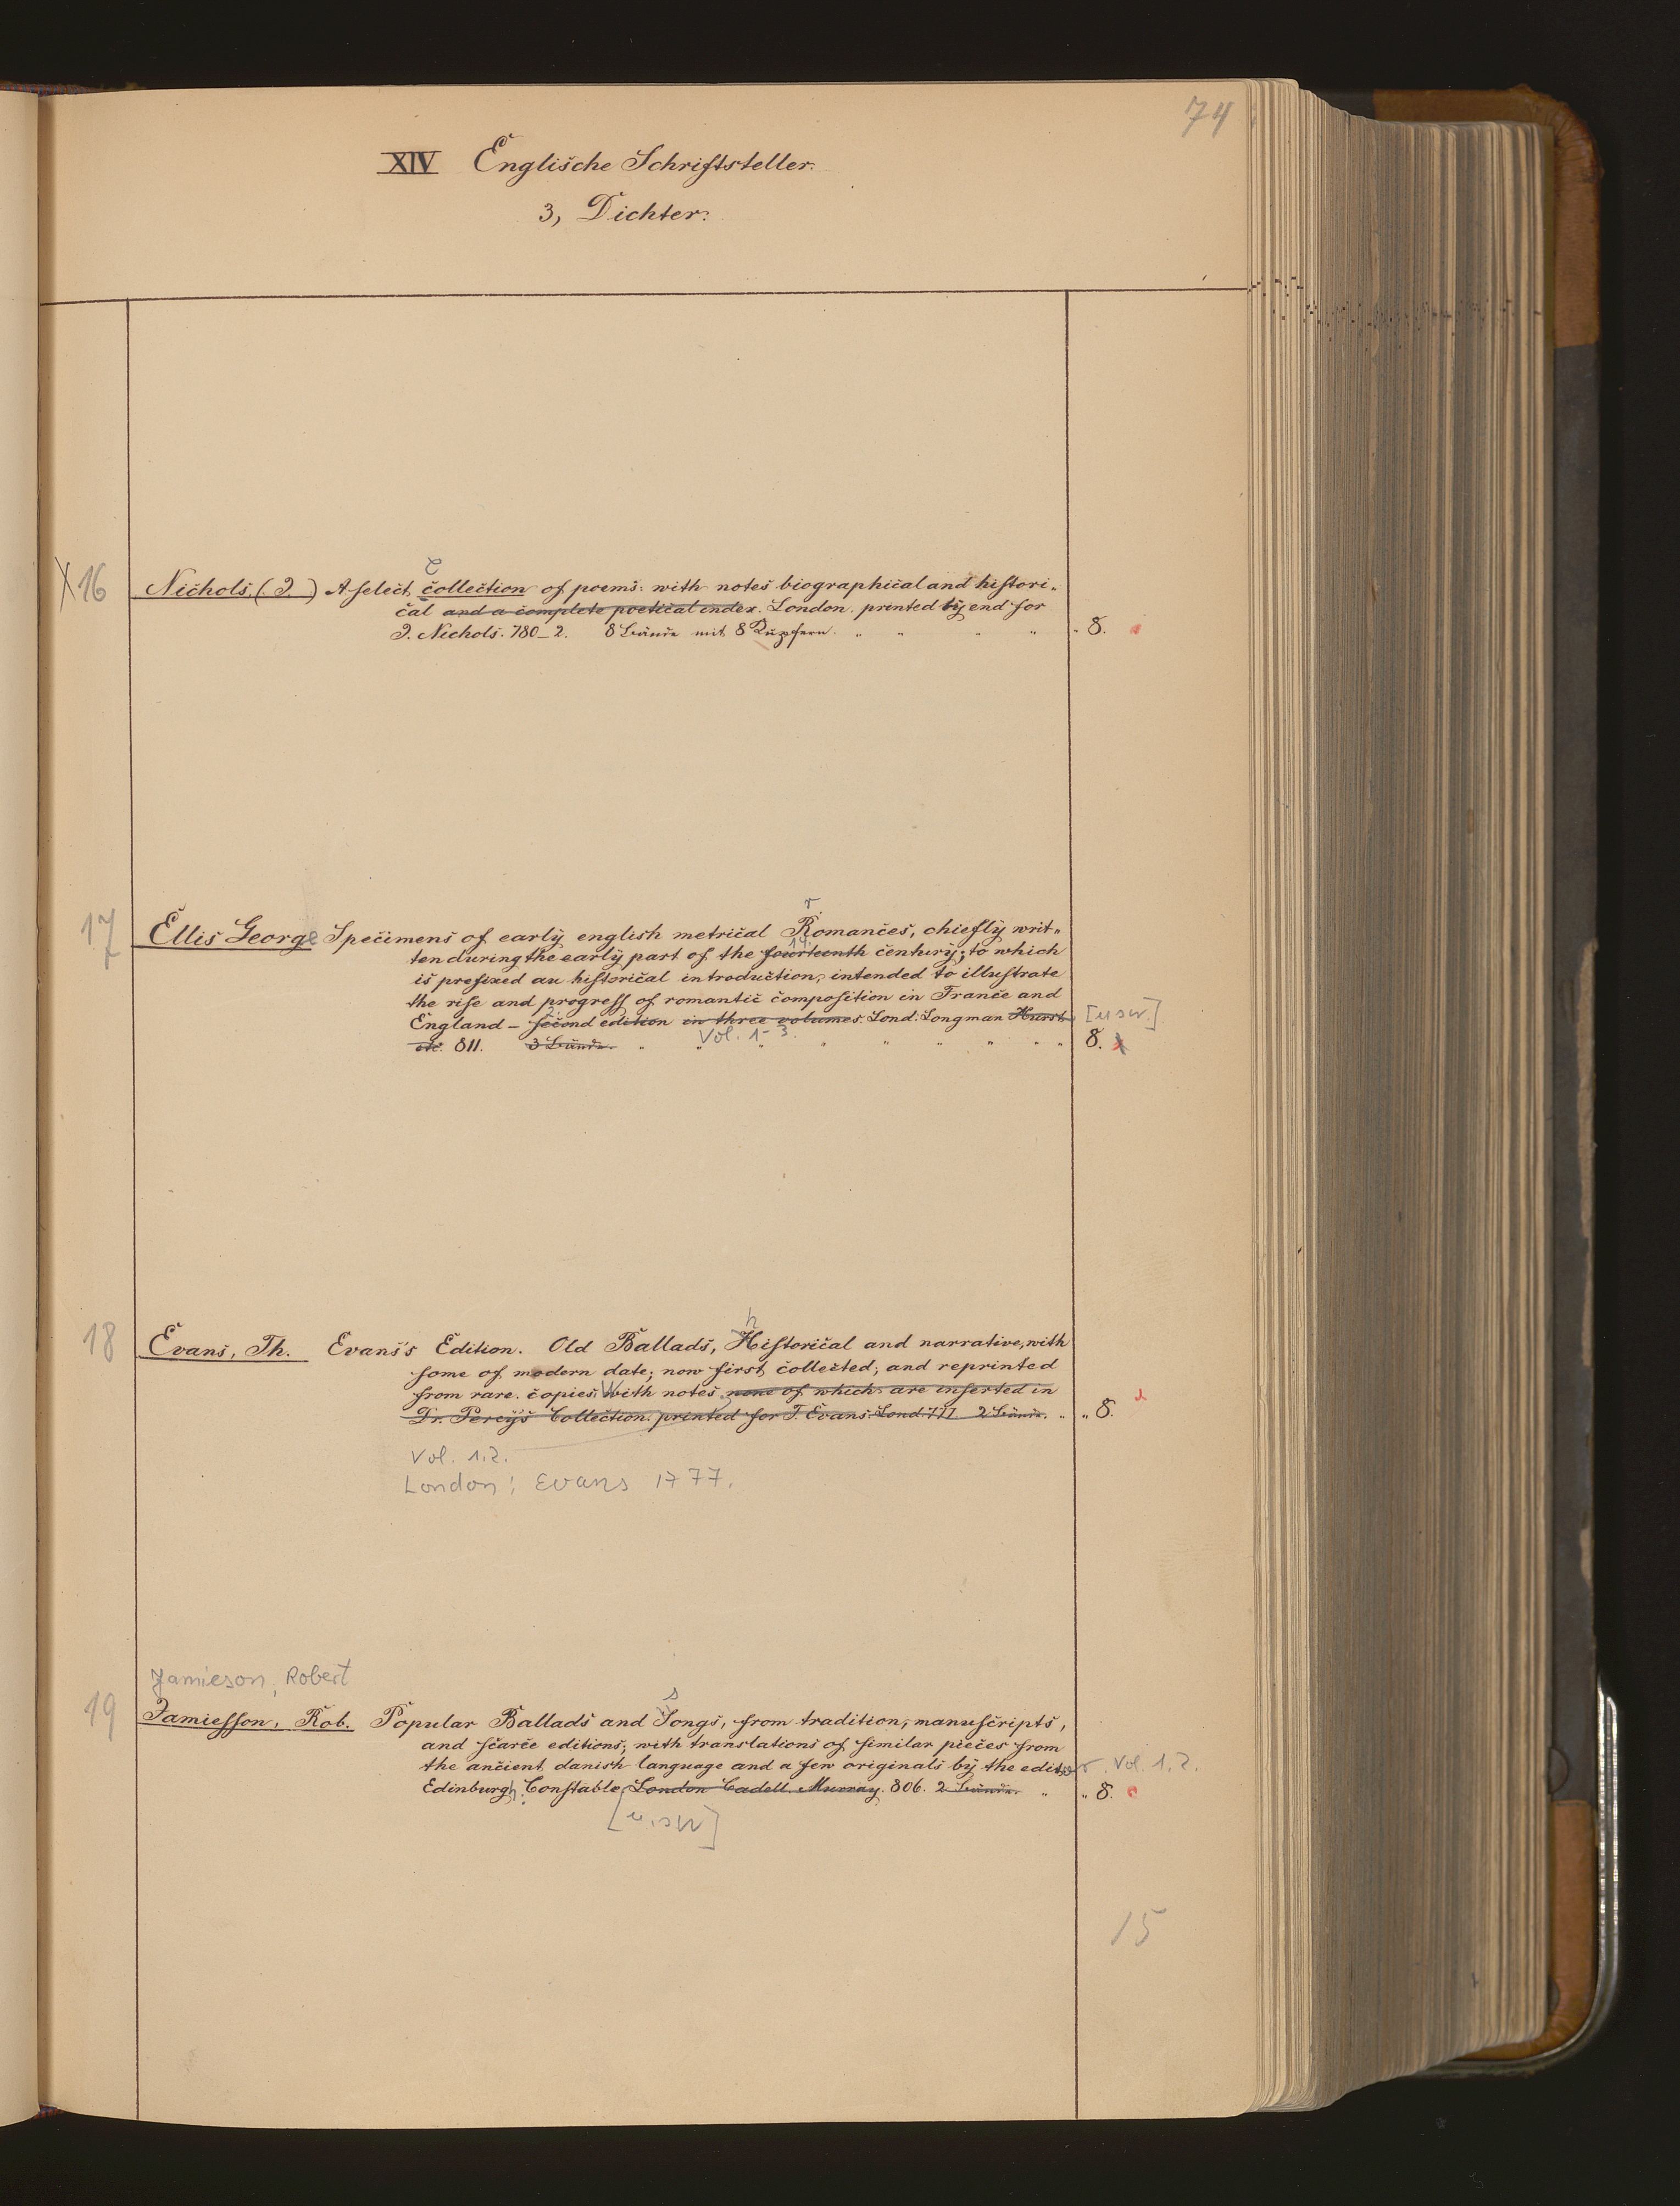 74
XIV Englische Schriftsteller.
3, Dichter.
X 16
C
Nichols, (J.) A select collection of poems: with notes biographical and histori-
cal and a complete poetical index. London. printed by end for
J. Nichols. 780–2. 8 Bände mit 8 Kupfern. " " " " " 8.
r
17 Ellis George Specimens of early english metrical Romances, chiefly writ-
14.
ten during the early part of the fourteenth century; to which
is prefixed an historical introduction, intended to illustrate
the rise and progress of romantic composition in France and
2.
England – second edition in three volumes. Lond. Longman Hurst [usw.]
Vol. 1–3.
etc. 811. 3 Bände. " " " " " " " " " 8.
h
18 Evans, Th. Evans's Edition. Old Ballads, Historical and narrative, with
some of modern date; now first collected, and reprinted
from rare copies With notes none of which are inserted in
Dr. Percy's Collection. printed for T. Evans. Lond 777. 2 Bände. " " 8.
Vol. 1.2.
London: Evans 1777.
Jamieson, Robert
s
19 Jamiesson, Rob. Popular Ballads and Songs, from tradition, manuscripts,
and scarce editions; with translations of similar pieces from
the ancient danish language and a few originals by the editor. Vol. 1.2.
Edinburgh: Constable London Cadell. Murray. 806. 2 Bände. " " 8.
[u.sw]
15